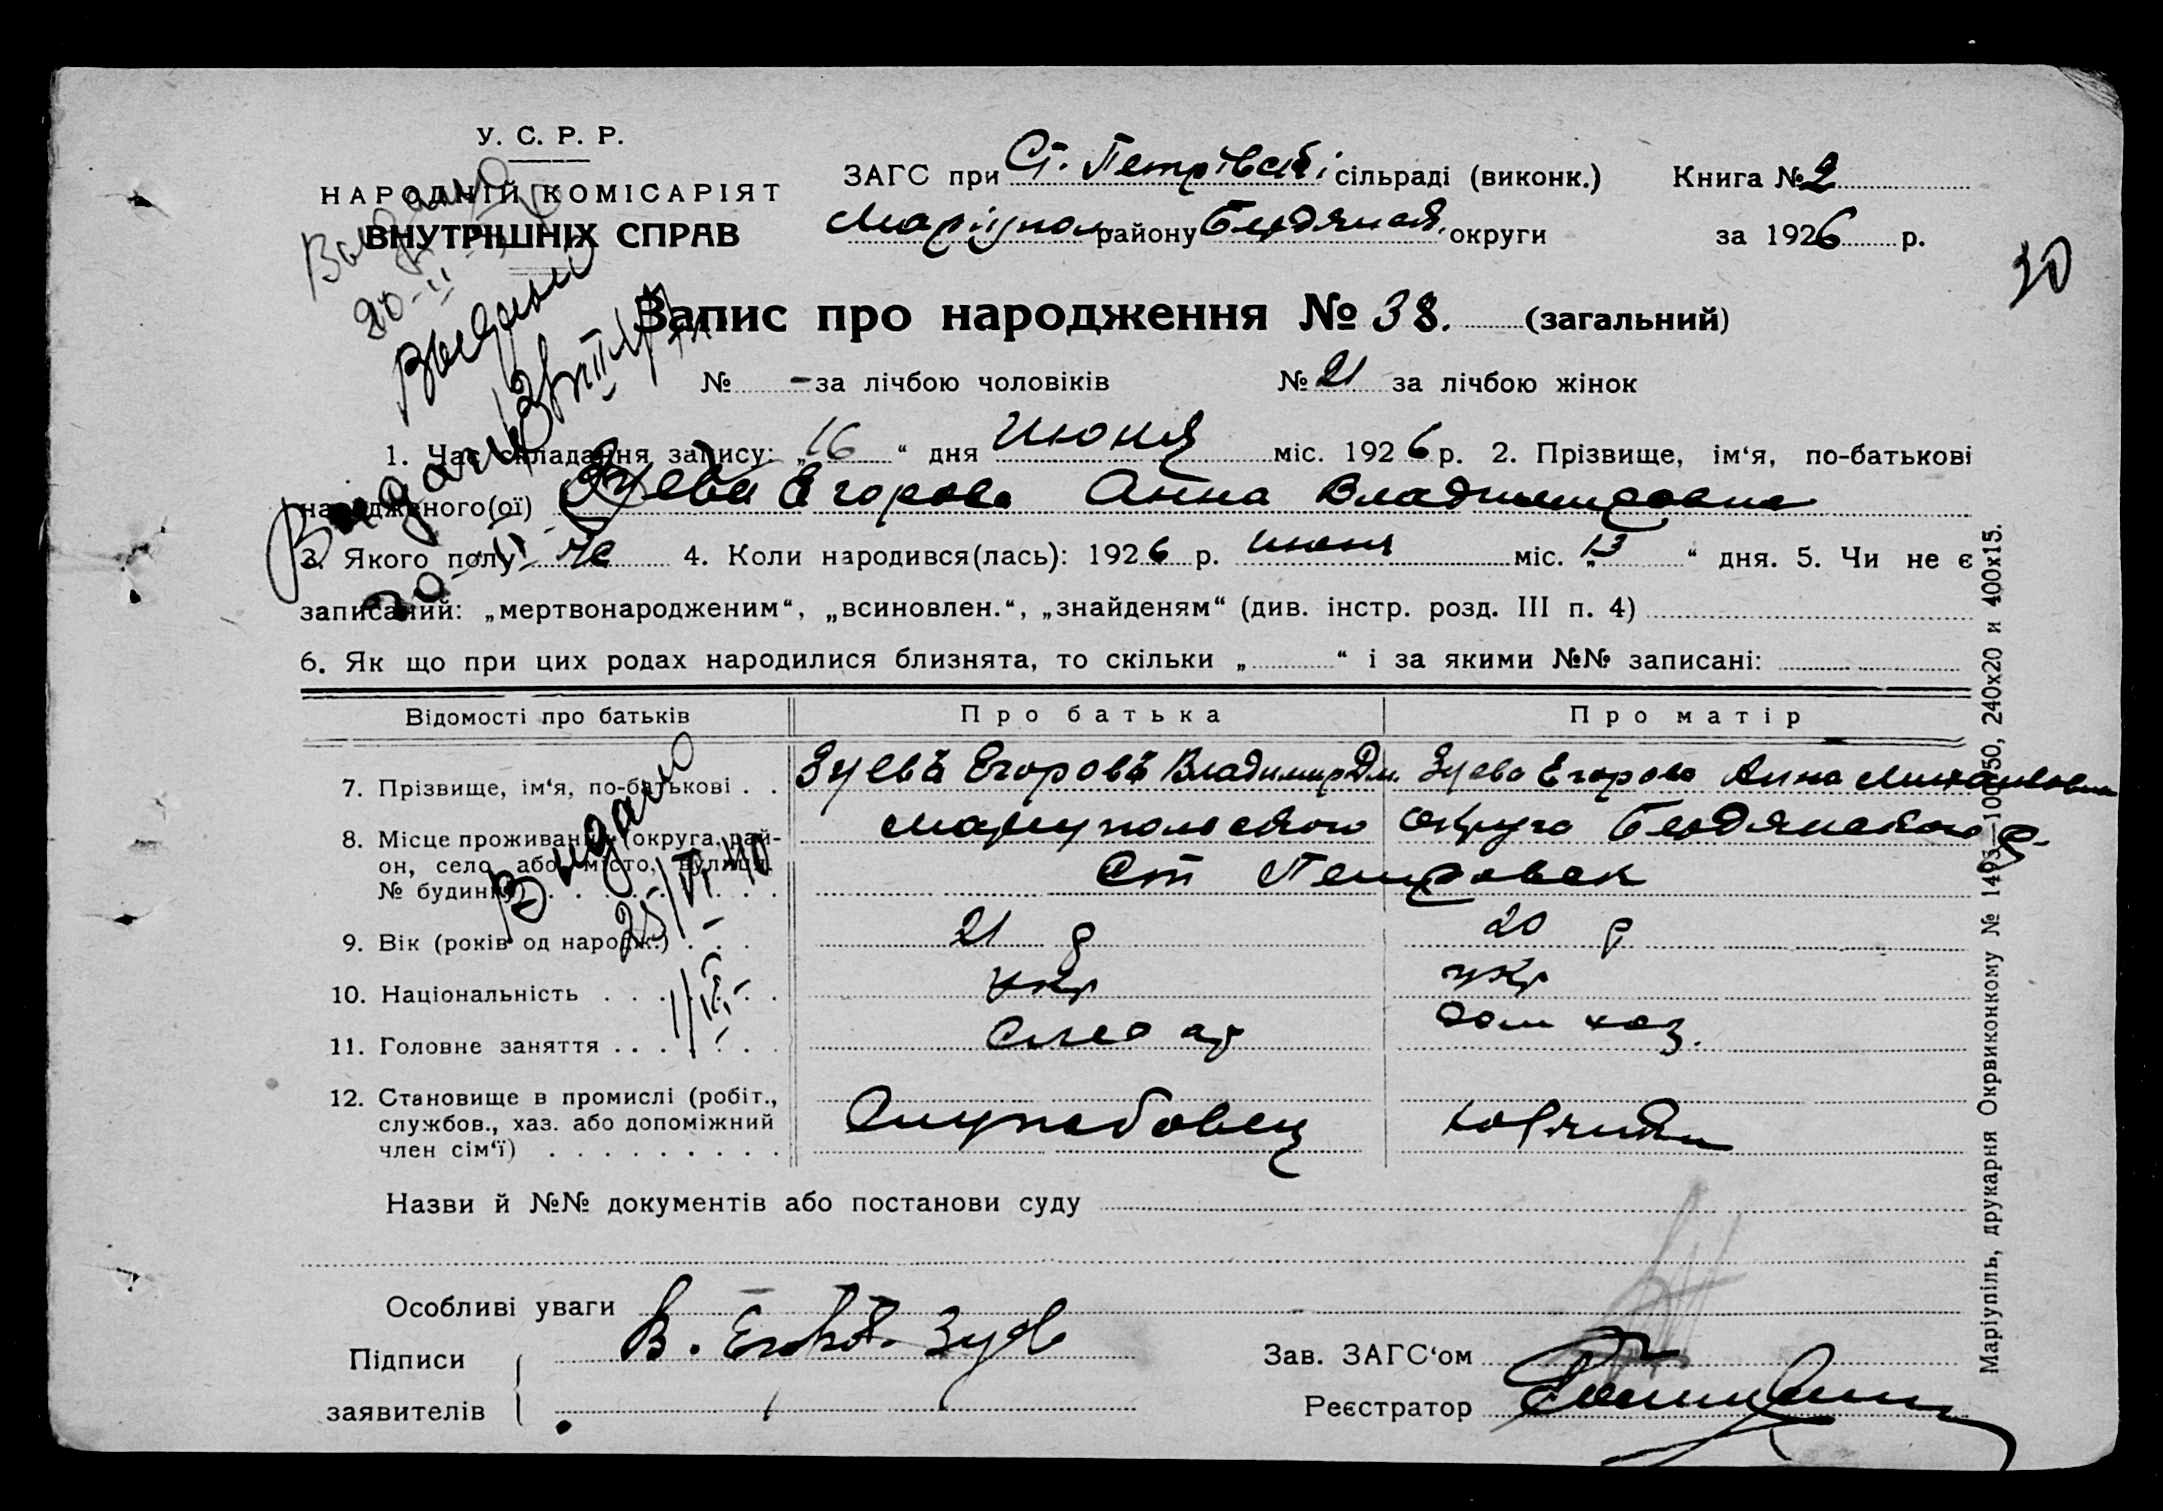 У. С. Р. Р.
НАРОДНІЙ КОМІСАРІЯТ
ВНУТРІШНІХ СПРАВ
ЗАГС при Ст. Петрівській сільраді (виконк.) Книга № 2
району округи за 1926 р.
30
Запис про народження № 38. (загальний)
№ - за лічбою чоловіків № 21 за лічбою жінок
1. Час складання запису: „16“ дня Июня міс. 1926 р. 2. Прізвище, ім‘я, по-батькові
народженого(ої) Зуева Егорова Анна Владимировна
3. Якого полу ж 4. Коли народився(лась): 1926 р. июня міс. „13“ дня. 5. Чи не є
записаний: „мертвонародженим“, „всиновлен.“, „знайденям“ (див. інстр. розд. III п. 4)
6. Як що при цих родах народилися близнята, то скільки „ “ і за якими №№ записані:
Відомості про батьків Про батька Про матір
7. Прізвище, ім‘я, по-батькові . . Зуевъ Егоровъ Владимир Дм. Зуева Егорова Анна Михайловна
8. Місце проживання (округа, рай-
он, село або місто, вулиця,
№ будинку) Мариупольского округа Бердянского р.
Ст Петровск
9. Вік (років од народж.) 21 р 20 р
10. Національність укр укр
11. Головне заняття слесар Дом хоз.
12. Становище в промислі (робіт.,
службов., хаз. або допоміжний
член сім‘ї) Служебовец
Назви й №№ документів або постанови суду
Особливі уваги
Підписи
заявителів
В. Зуев
Зав. ЗАГС‘ом
Реєстратор
Видано
25/VI 40
Маріупіль, друкарня Окрвиконкому № 1493—10050, 240х20 и 400х15.